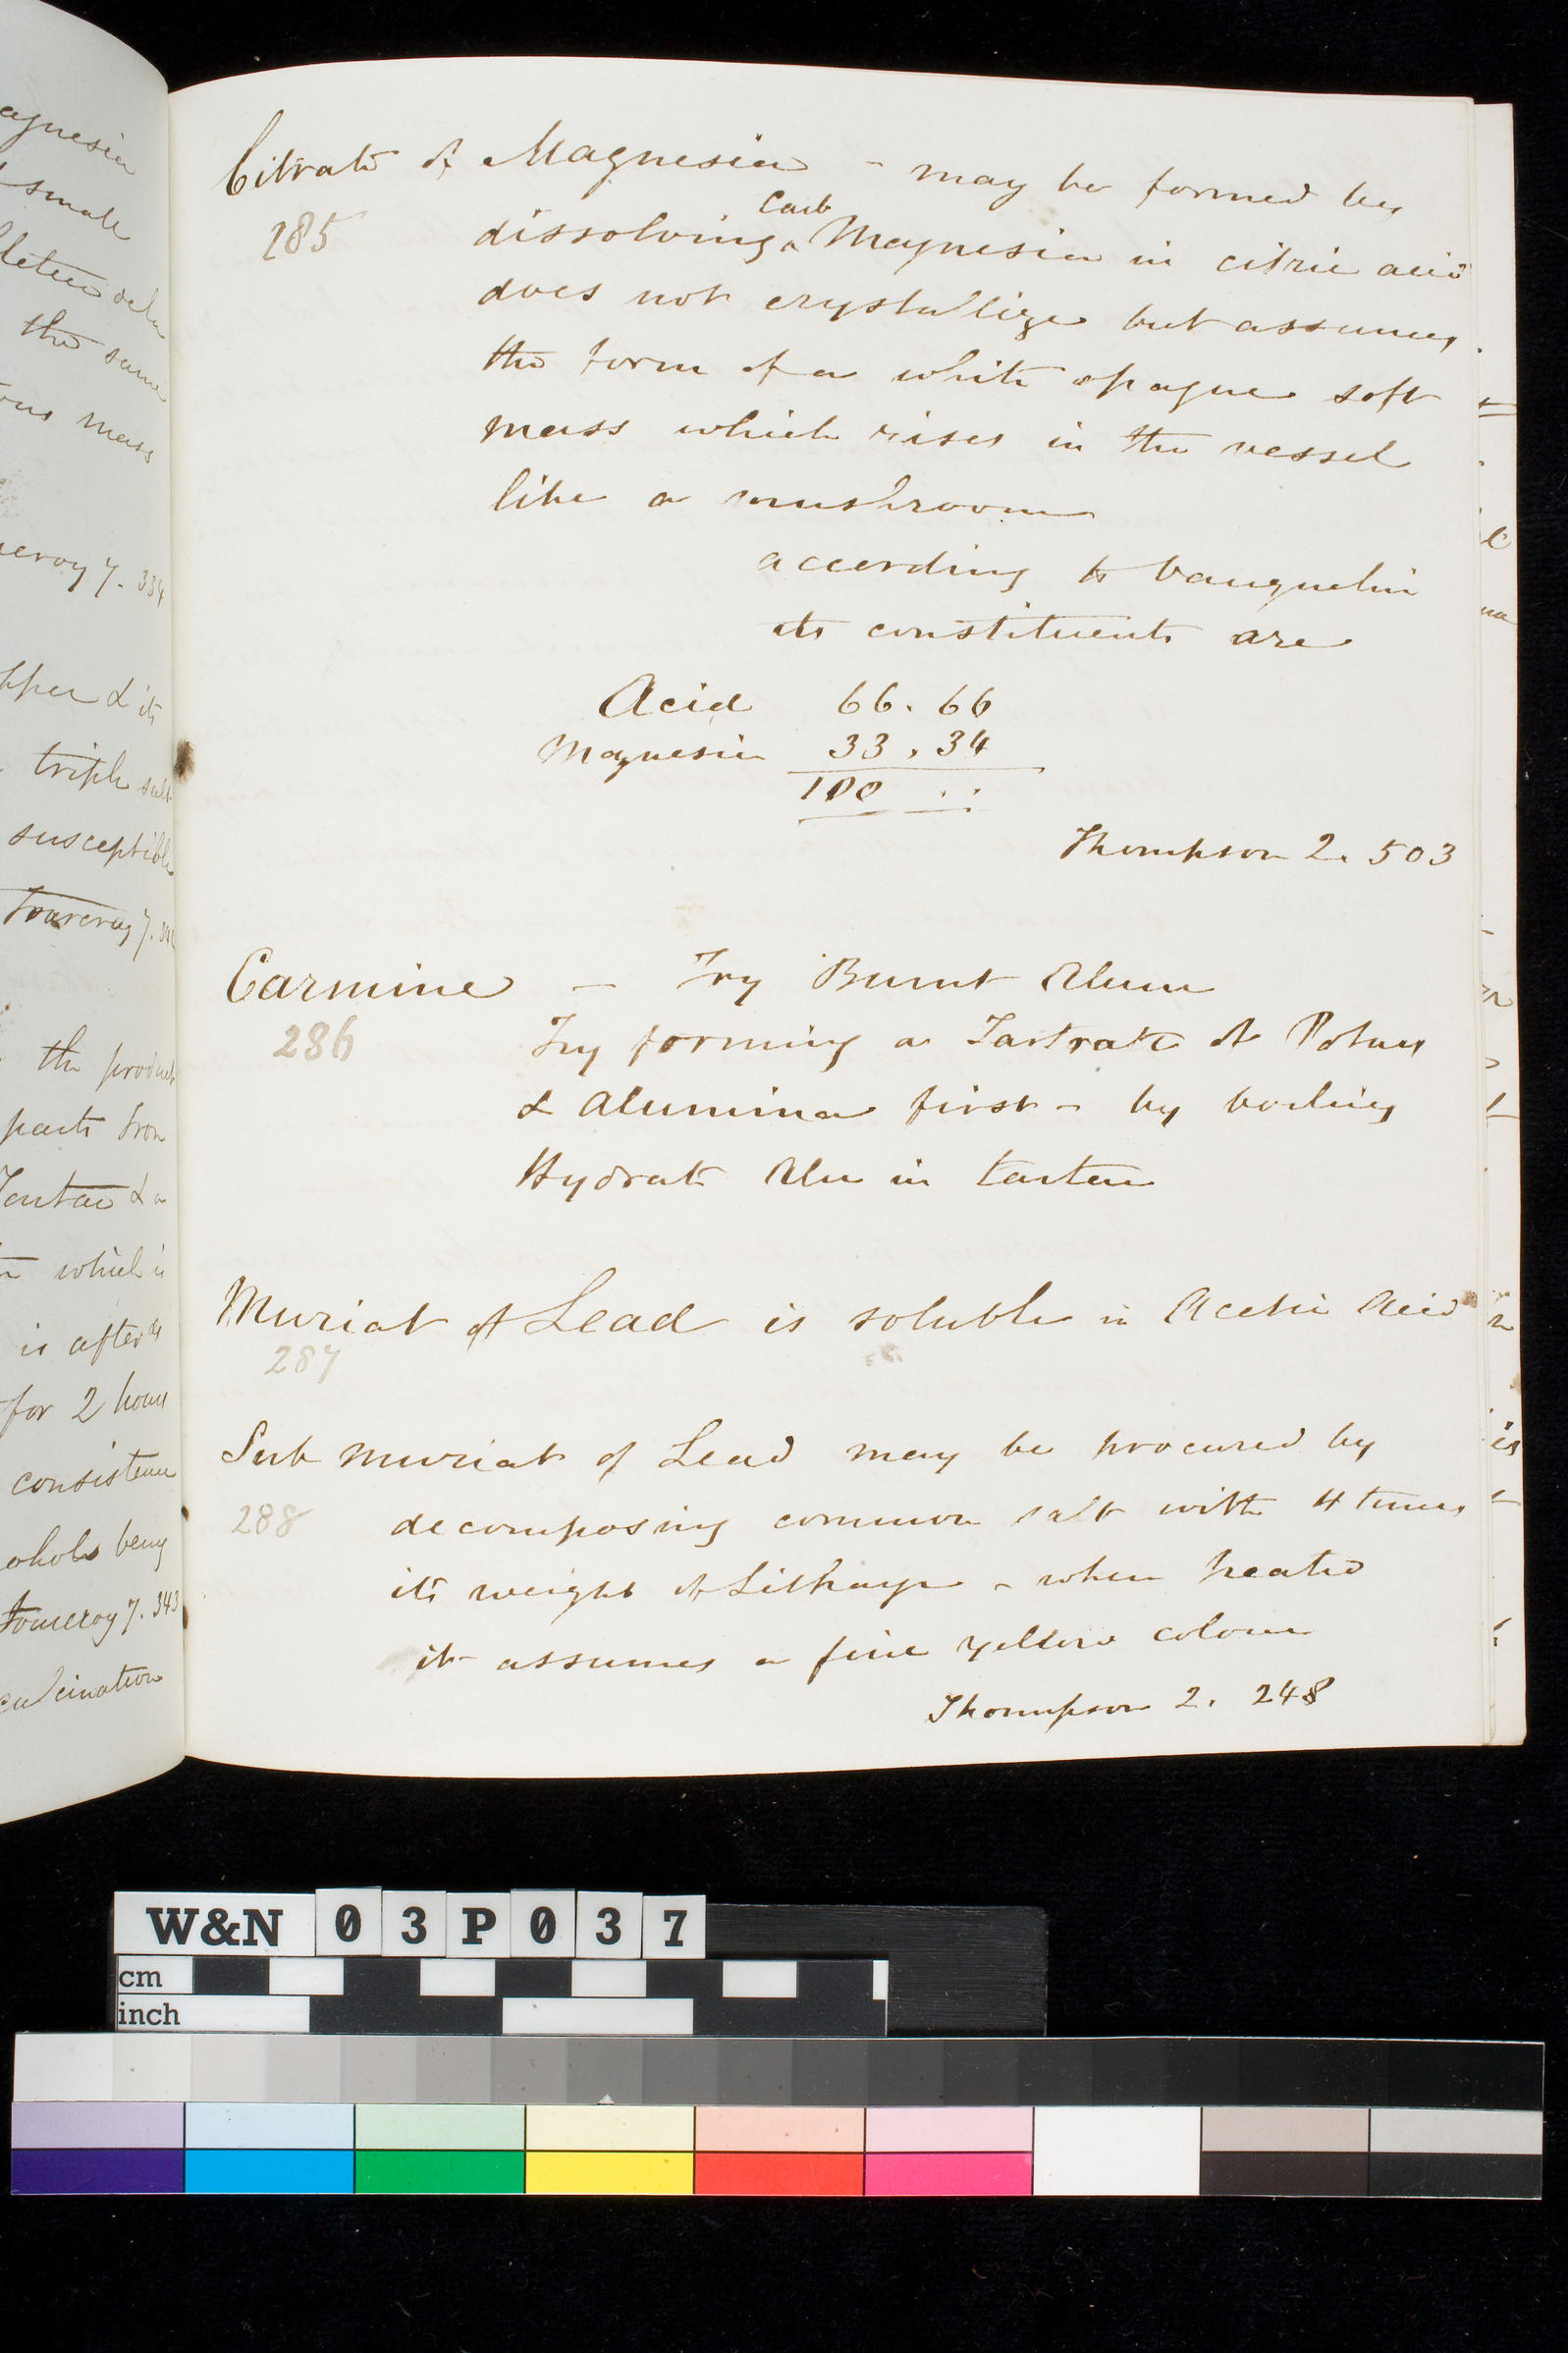 agnesia
small
the same
ous mass
croy 7. 334
pper & its
triple salt
susceptible
Fourcroy 7.
the product
parts from
which is
is after
for 2 hours
consistence
being
Fourcroy 7. 343
calcination
Citrate of Magnesia - may be formed by
285
Carb
dissolving ^ Magnesia in citric acid
does not crystallize but assumes
the form of a white opaque soft
mass which rises in the vessel
like a mushroom
according to Vauquelin
its constituents are
Acid 66.66
Magnesia 33.34
100 ..
Thompson 2. 503
Carmine - Try Burnt Alum
286
Try forming a Tartrate of Potass
& Alumina first - by boiling
Hydrate Alu in tartar
Muriat of Lead is soluble in Acetic Acid
287
Sub Muriat of Lead may be procured by
288
decomposing common salt with 4 times
its weight of Litharge - when heated
it assumes a fine yellow colour
Thompson 2. 248
W&N 03P037
cm
inch